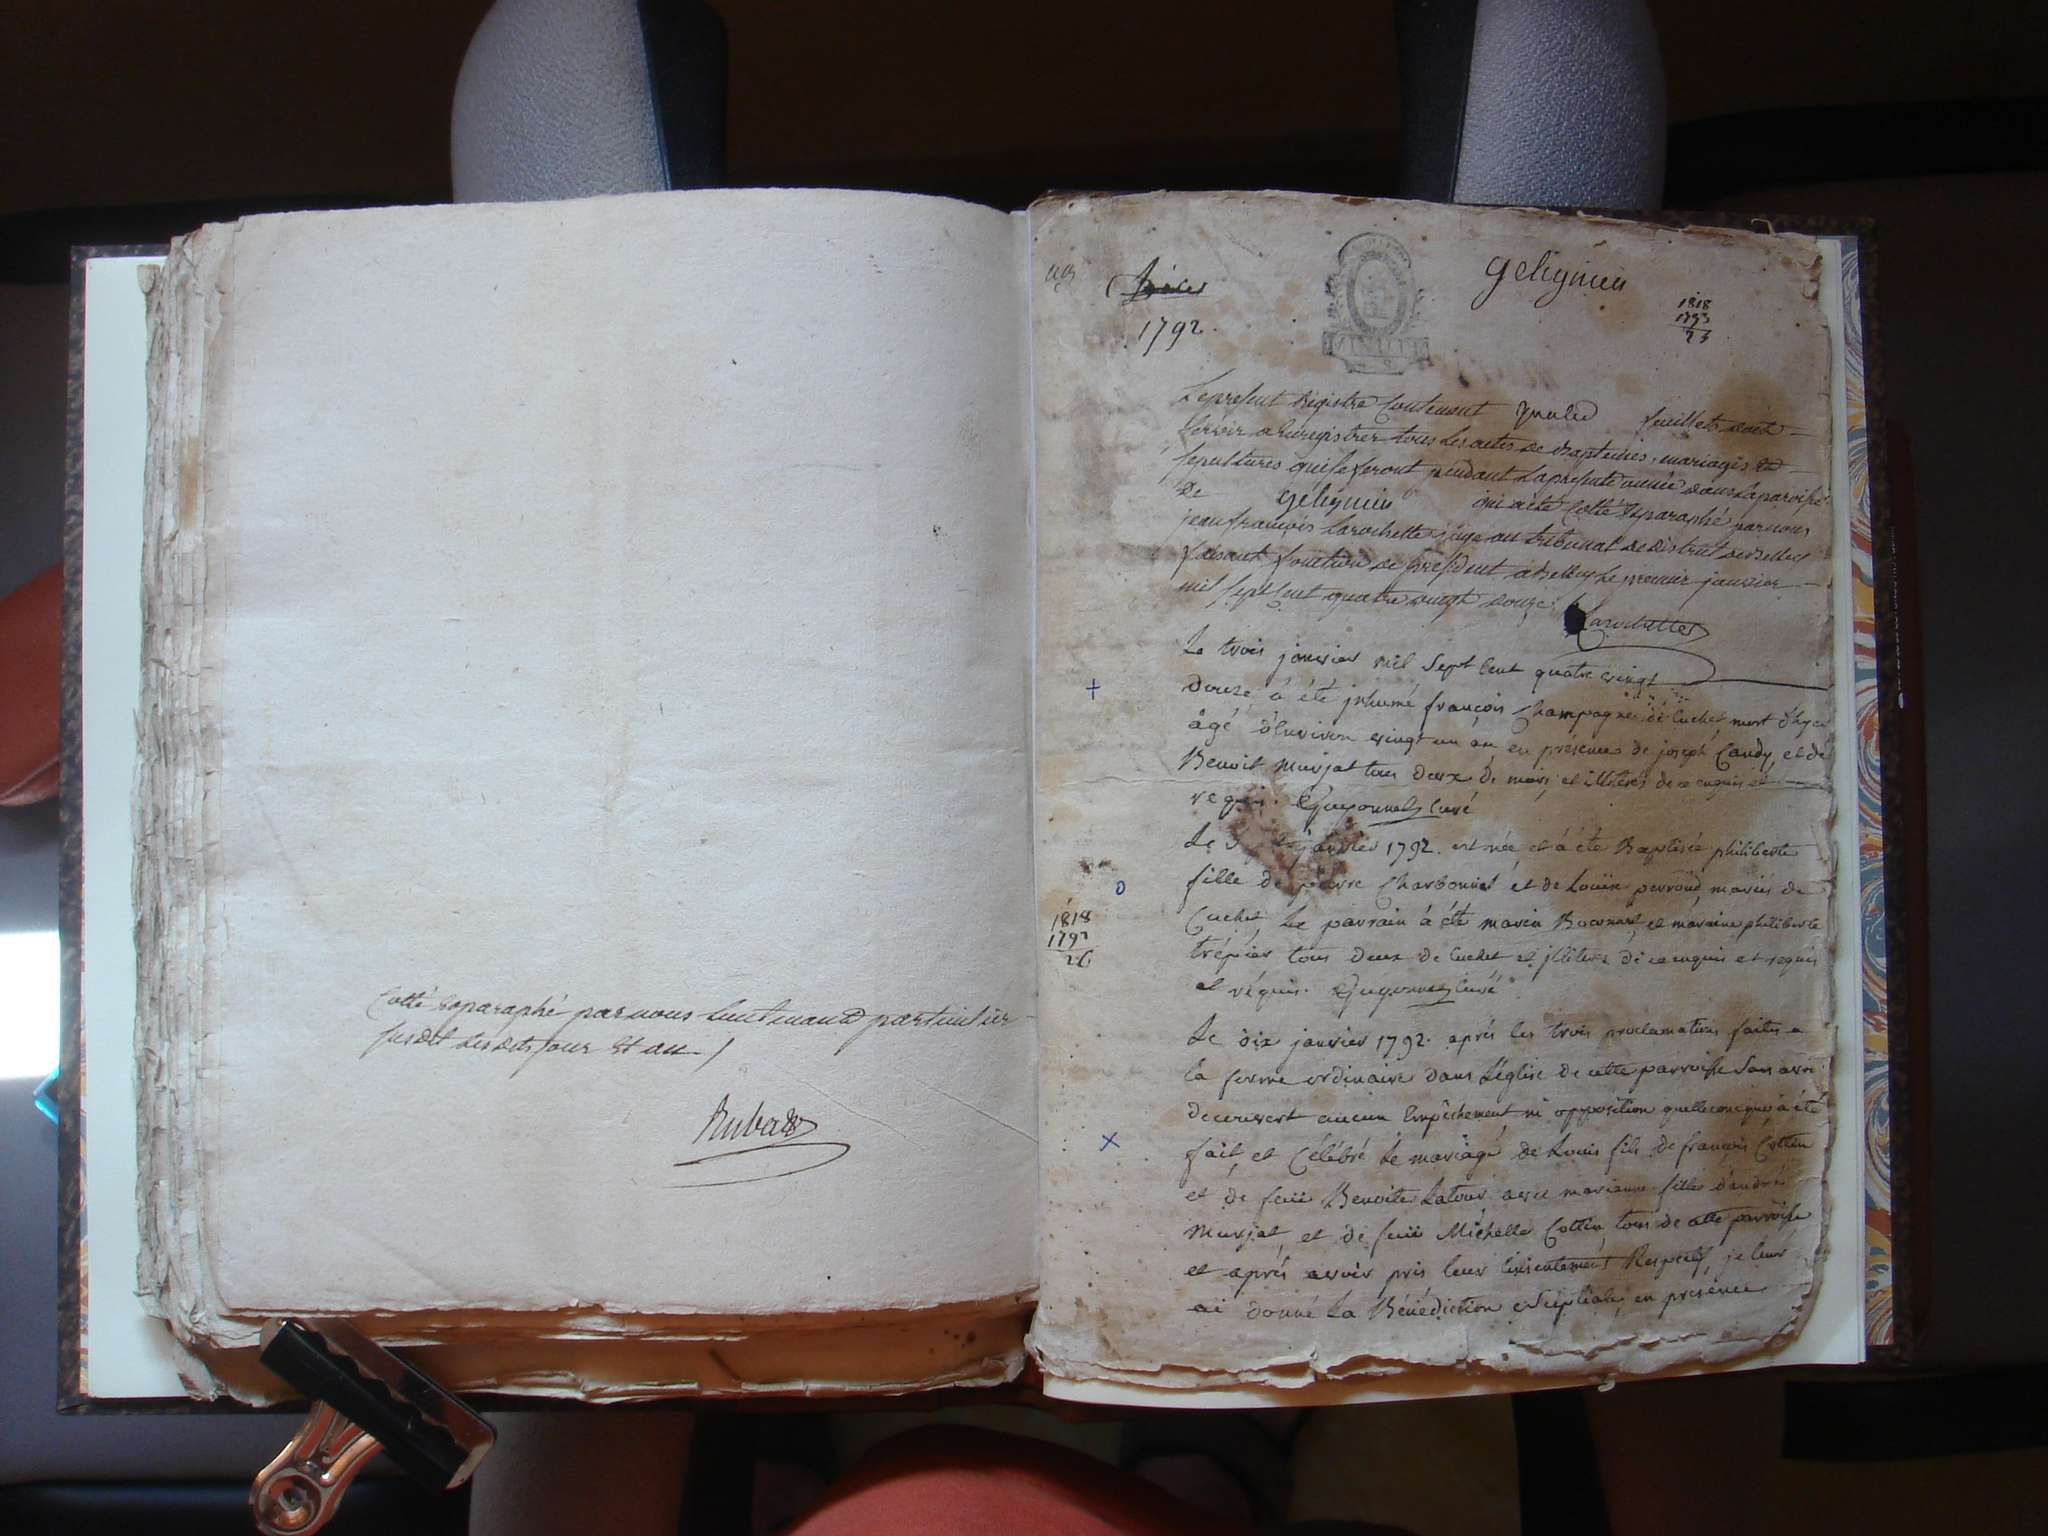 Cotté & paraphé par nous lieutenand particulier
susdit les dits jour et an
Rubat
1792.
gelignieu
1818
1793
MINUTE
Le present Régistre Contenant feuillets doit
servir a Enregistrer tous les actes de Baptemes, mariages et
sepultures qui se feront pendant la presente année dans la paroisse
de gelignieu qui a été Cotté & paraphé par nous
jean françois Larochette juge au tribunal de district de Belley
faisant fonction de President a Belley le premier janvier
mil sept Cent quatre vingt douze
Larochette
Le trois janvier mil sept Cent quatre vingt
douze, à été jnhumé françois Champagne de Cuchet, mort d'hyer
âgé d'Environ vingt un an en présence de joseph Candy, et de
Benoit Murjat tous deux de et illiterés de ce enquis et
requis. Guyonnet Curé
Le janvier 1792. est née et à été Baptisée philiberte
fille de pierre Charbonnet et de Louïse perroud mariés de
Cuchet, Le parrain à été marin et maraine philiberte
trépier tous deux de Cuchet et jlliterés de ce enquis et requis
et réquis. Guyonnet Curé
1818
1792
26
Le dix janvier 1792. après les trois proclamations faites a
la forme ordinaire dans L'église de cette parroisse sans avoir
decouvert aucun Empêchement ni opposition quelleconque à été
fait, et Célébré Le mariage de Louis fils de françois Cottin
et de feüe Benoite Latour, avec marianne fille d'andré
Murjat, et de feüe Michelle Cottin, tous de cette parroisse
et après avoir pris leur Consentement Respectif, je leur
ai donné La Bénédiction Nuptiale, en présence